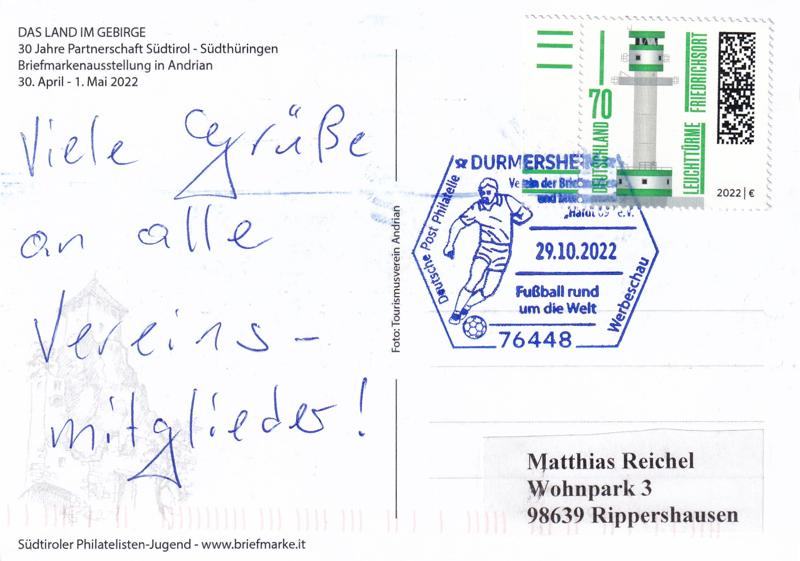 DAS LAND IM GEBIRGE
30 Jahre Partnerschaft Südtirol - Südthüringen
Briefmarkenausstellung in Andrian
30. April - 1. Mai 2022
Viele Grüße
an alle
Vereins-
mitglieder!
Südtiroler Philatelisten-Jugend - www.briefmarke.it
Foto: Tourismusverein Andrian
DEUTSCHLAND 70
LEUCHTTÜRME FRIEDRICHSORT
2022 | €
Deutsche Post Philatelie
Verein der
und
„Hardt 09“ e.V.
29.10.2022
Fußball rund
um die Welt
Werbeschau
76448
Matthias Reichel
Wohnpark 3
98639 Rippershausen